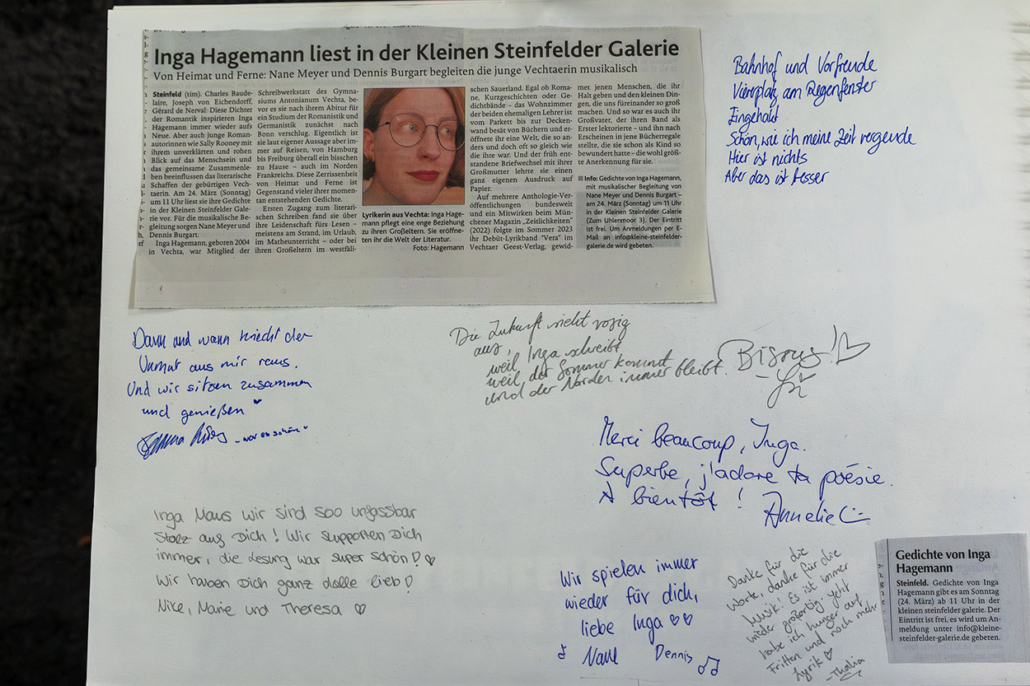 Inga Hagemann liest in der Kleinen Steinfelder Galerie
Von Heimat und Ferne: Nane Meyer und Dennis Burgart begleiten die junge Vechtaerin musikalisch
Steinfeld (tim). Charles Baude-
laire, Joseph von Eichendorff,
Gérard de Nerval: Diese Dichter
der Romantik inspirieren Inga
Hagemann immer wieder aufs
Neue. Aber auch junge Roman-
autorinnen wie Sally Rooney mit
ihrem unverklärten und rohen
Blick auf das Menschsein und
das gemeinsame Zusammenle-
ben beeinflussen das literarische
Schaffen der gebürtigen Vech-
taerin. Am 24. März (Sonntag)
um 11 Uhr liest sie ihre Gedichte
in der Kleinen Steinfelder Gale-
rie vor. Für die musikalische Be-
gleitung sorgen Nane Meyer und
Dennis Burgart.
Inga Hagemann, geboren 2004
in Vechta, war Mitglied der
Schreibwerkstatt des Gymna-
siums Antonianum Vechta, be-
vor es sie nach ihrem Abitur für
ein Studium der Romanistik und
Germanistik zunächst nach
Bonn verschlug. Eigentlich ist
sie laut eigener Aussage aber im-
mer auf Reisen, von Hamburg
bis Freiburg überall ein bisschen
zu Hause – auch im Norden
Frankreichs. Diese Zerrissenheit
von Heimat und Ferne ist
Gegenstand vieler ihrer momen-
tan entstehenden Gedichte.
Ersten Zugang zum literari-
schen Schreiben fand sie über
ihre Leidenschaft fürs Lesen –
meistens am Strand, im Urlaub,
im Matheunterricht – oder bei
ihren Großeltern im westfäli-
Lyrikerin aus Vechta: Inga Hage-
mann pflegt eine enge Beziehung
zu ihren Großeltern. Sie eröffne-
ten ihr die Welt der Literatur.
Foto: Hagemann
schen Sauerland. Egal ob Roma-
ne, Kurzgeschichten oder Ge-
dichtbände – das Wohnzimmer
der beiden ehemaligen Lehrer ist
vom Parkett bis zur Decken-
wand besät von Büchern und er-
öffnete ihr eine Welt, die so an-
ders und doch oft so gleich wie
die ihre war. Und der früh ent-
standene Briefwechsel mit ihrer
Großmutter lehrte sie einen
ganz eigenen Ausdruck auf
Papier.
Auf mehrere Anthologie-Ver-
öffentlichungen bundesweit
und ein Mitwirken beim Mün-
chener Magazin „Zeitlichkeiten"
(2022) folgte im Sommer 2023
ihr Debüt-Lyrikband "Vera" im
Vechtaer Geest-Verlag, gewid-
met jenen Menschen, die ihr
Halt geben und den kleinen Din-
gen, die uns füreinander so groß
machen. Und so war es auch ihr
Großvater, der ihren Band als
Erster lektorierte – und ihn nach
Erscheinen in jene Bücherregale
stellte, die sie schon als Kind so
bewundert hatte – die wohl größ-
te Anerkennung für sie.
Info: Gedichte von Inga Hagemann,
mit musikalischer Begleitung von
Nane Meyer und Dennis Burgart –
am 24. März (Sonntag) um 11 Uhr
in der Kleinen Steinfelder Galerie
(Zum Uhlenmoor 3). Der Eintritt
ist frei. Um Anmeldungen per E-
Mail an info@kleine-steinfelder-
galerie.de wird gebeten.
Bahnhof und Vorfreude
Viererplatz am Regenfenster
Eingehold
Schön, wie ich meine Zeit vergeude
Hier ist nichts
Aber das ist besser
Dann und wann kriecht der
Unmut aus mir raus.
Und wir sitzen zusammen
und genießen
- war so schön
Die Zukunft sieht rosig
aus,
weil Inga schreibt
weil der Sommer kommt
und der Norden immer bleibt.
Bisous!
Merci beaucoup, Inga.
Superbe, j'adore ta poésie.
À bientôt !
Annelie
Inga Maus wir sind soo unfassbar
stolz auf Dich! Wir supporten Dich
immer, die Lesung war super schön! ♡
Wir haben Dich ganz dolle lieb!
Nike, Marie und Theresa ♡
Wir spielen immer
wieder für dich,
liebe Inga ♡♡
♪ Nane Dennis ♫
Danke für die
Worte, danke für die
Musik. Es ist immer
wieder großartig. Jetzt
habe ich hunger auf
Fritten und noch mehr
Lyrik ♡
-Thalia
Gedichte von Inga
Hagemann
Steinfeld. Gedichte von Inga
Hagemann gibt es am Sonntag
(24. März) ab 11 Uhr in der
kleinen steinfelder galerie. Der
Eintritt ist frei, es wird um An-
meldung unter info@kleine-
steinfelder-galerie.de gebeten.